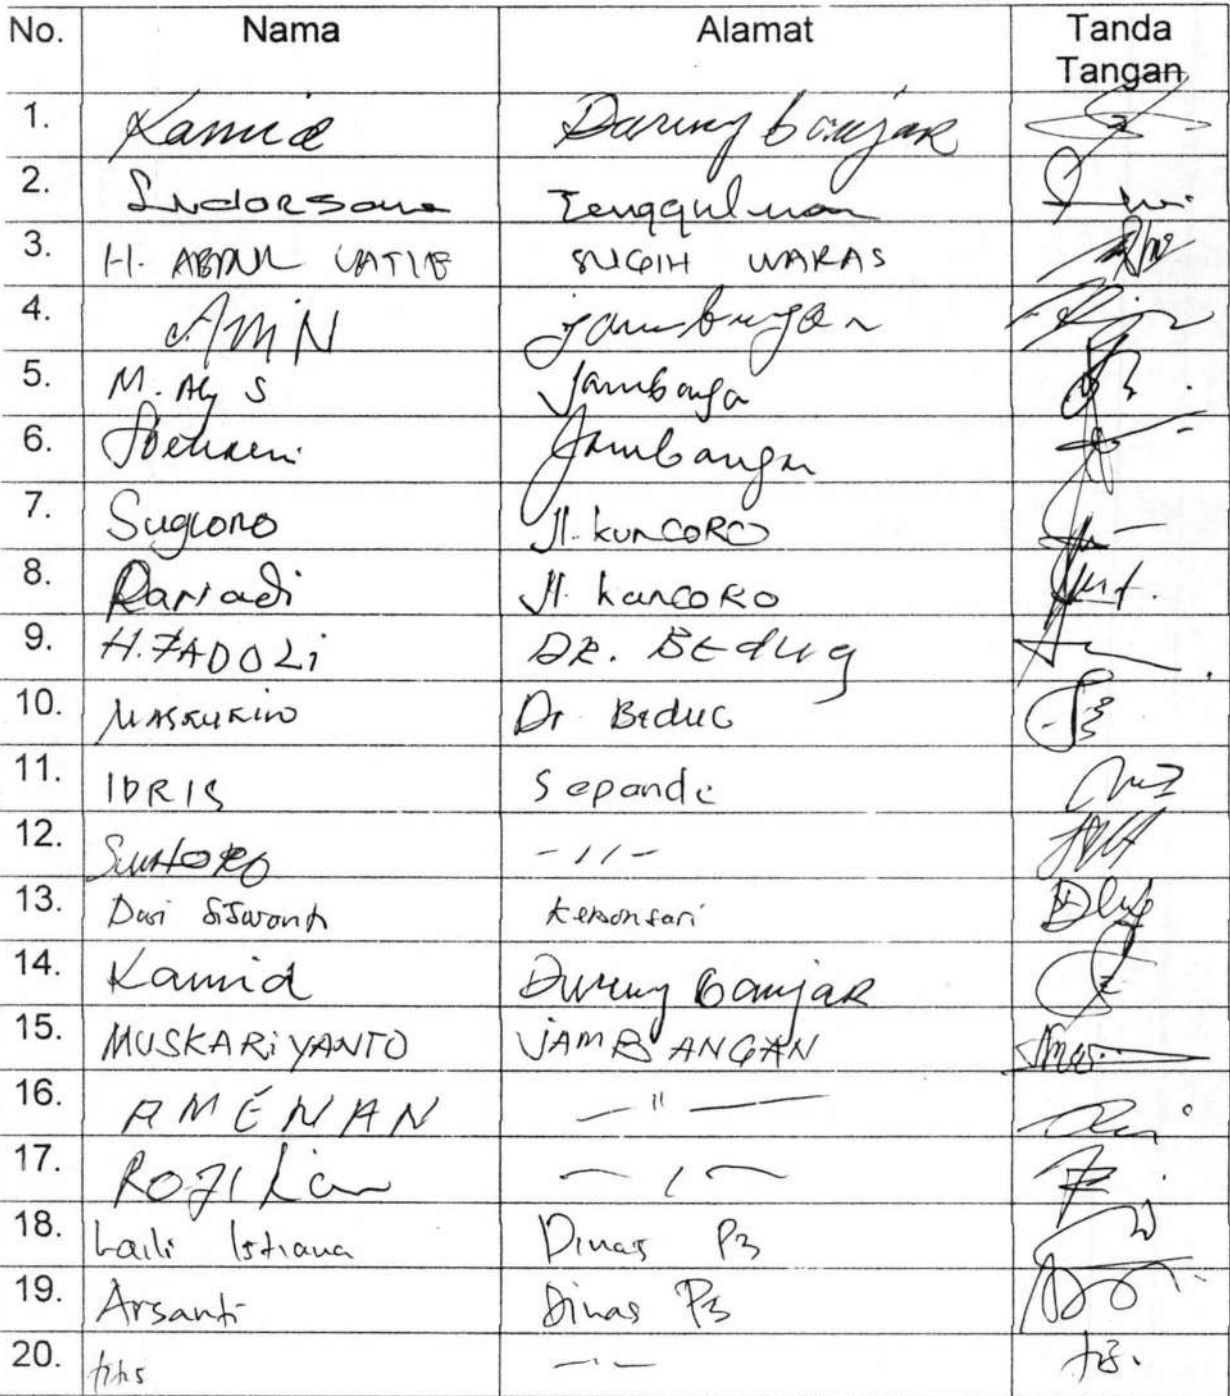 No. Nama Alamat Tanda Tangan
1. Kamid Durung banjar
2. Sudarsono Tenggulunan
3. H. ABDUL LATIF SUGIH WARAS
4. AMIN jambangan
5. M. Aly S Jambanga
6. Jambangan
7. Sugiono Jl. kunCORO
8. Rariadi Jl. kuncoRO
9. H. FADOLi DR. BEdug
10. MASRUKIN Dr BeduG
11. IDRIS Sepande
12. SUNTORO - 11 -
13. Kebonsari
14. Kamid Durung banjaR
15. MUSKARiYANTO JAMBANGAN
16. AMENAN — " —
17. — 1 —
18. Laili Istiana Dinas P3
19. Arsanti Dinas P3
20. titis - 1 -